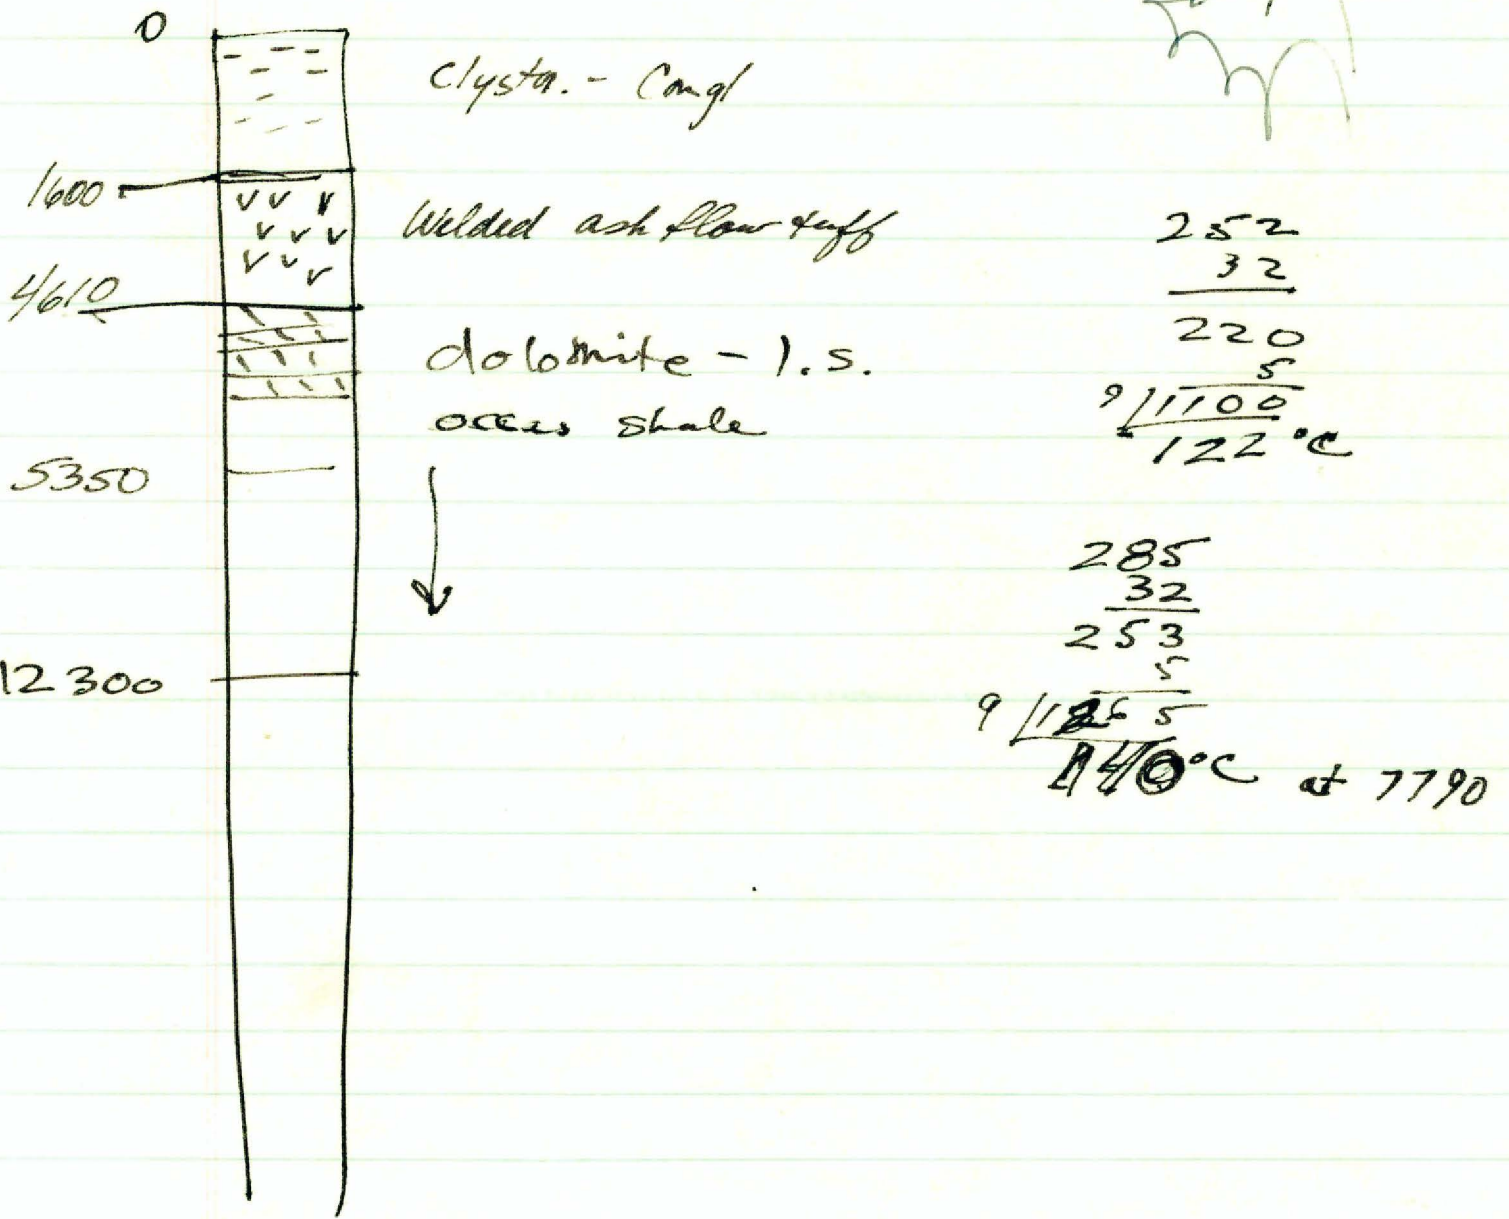 0
Clystn. - Congl
1600
Welded ash flow tuff
4610
dolomite - l.s.
occas shale
5350
12300
252
32
220
5
9 1100
122 °C
285
32
253
5
9 1265
140 °C at 7790